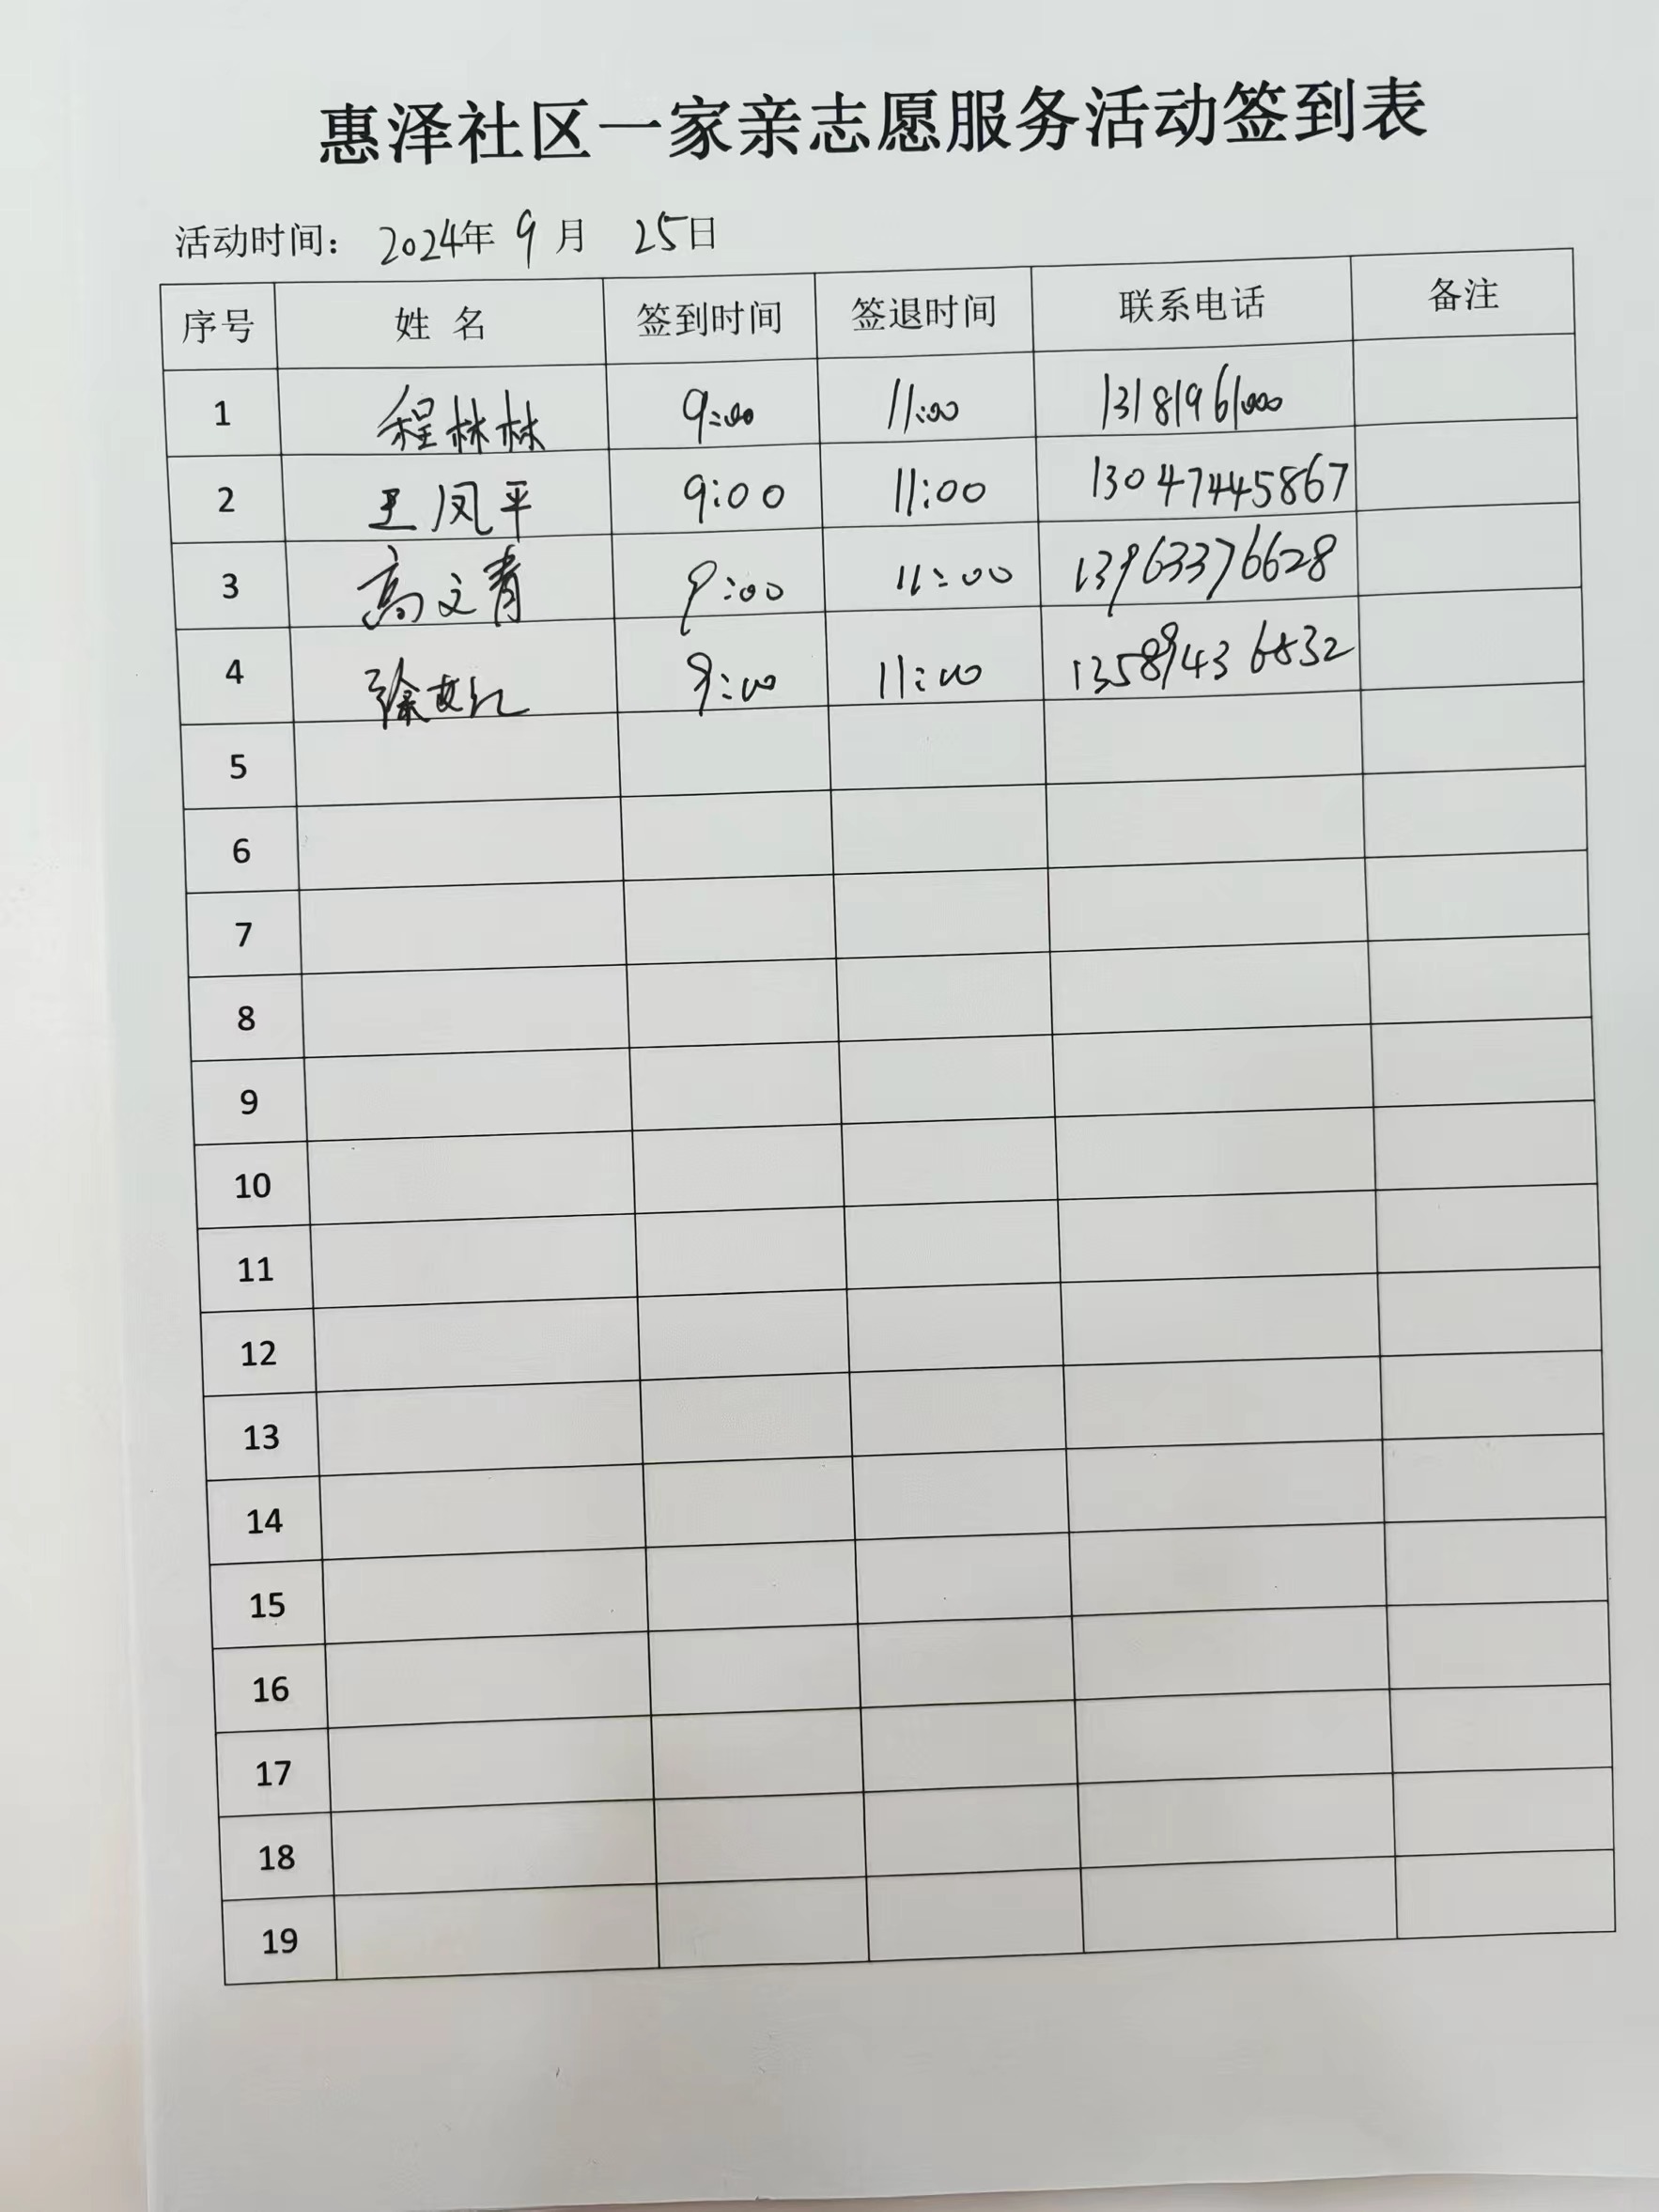 惠泽社区一家亲志愿服务活动签到表
活动时间： 2024年 9 月 25日
序号 姓 名 签到时间 签退时间 联系电话 备注
1 程林林 9:00 11:00 13181961000
2 王凤平 9:00 11:00 13047445867
3 高文青 9:00 11:00 13963376628
4 徐 9:00 11:00 13589436832
5
6
7
8
9
10
11
12
13
14
15
16
17
18
19